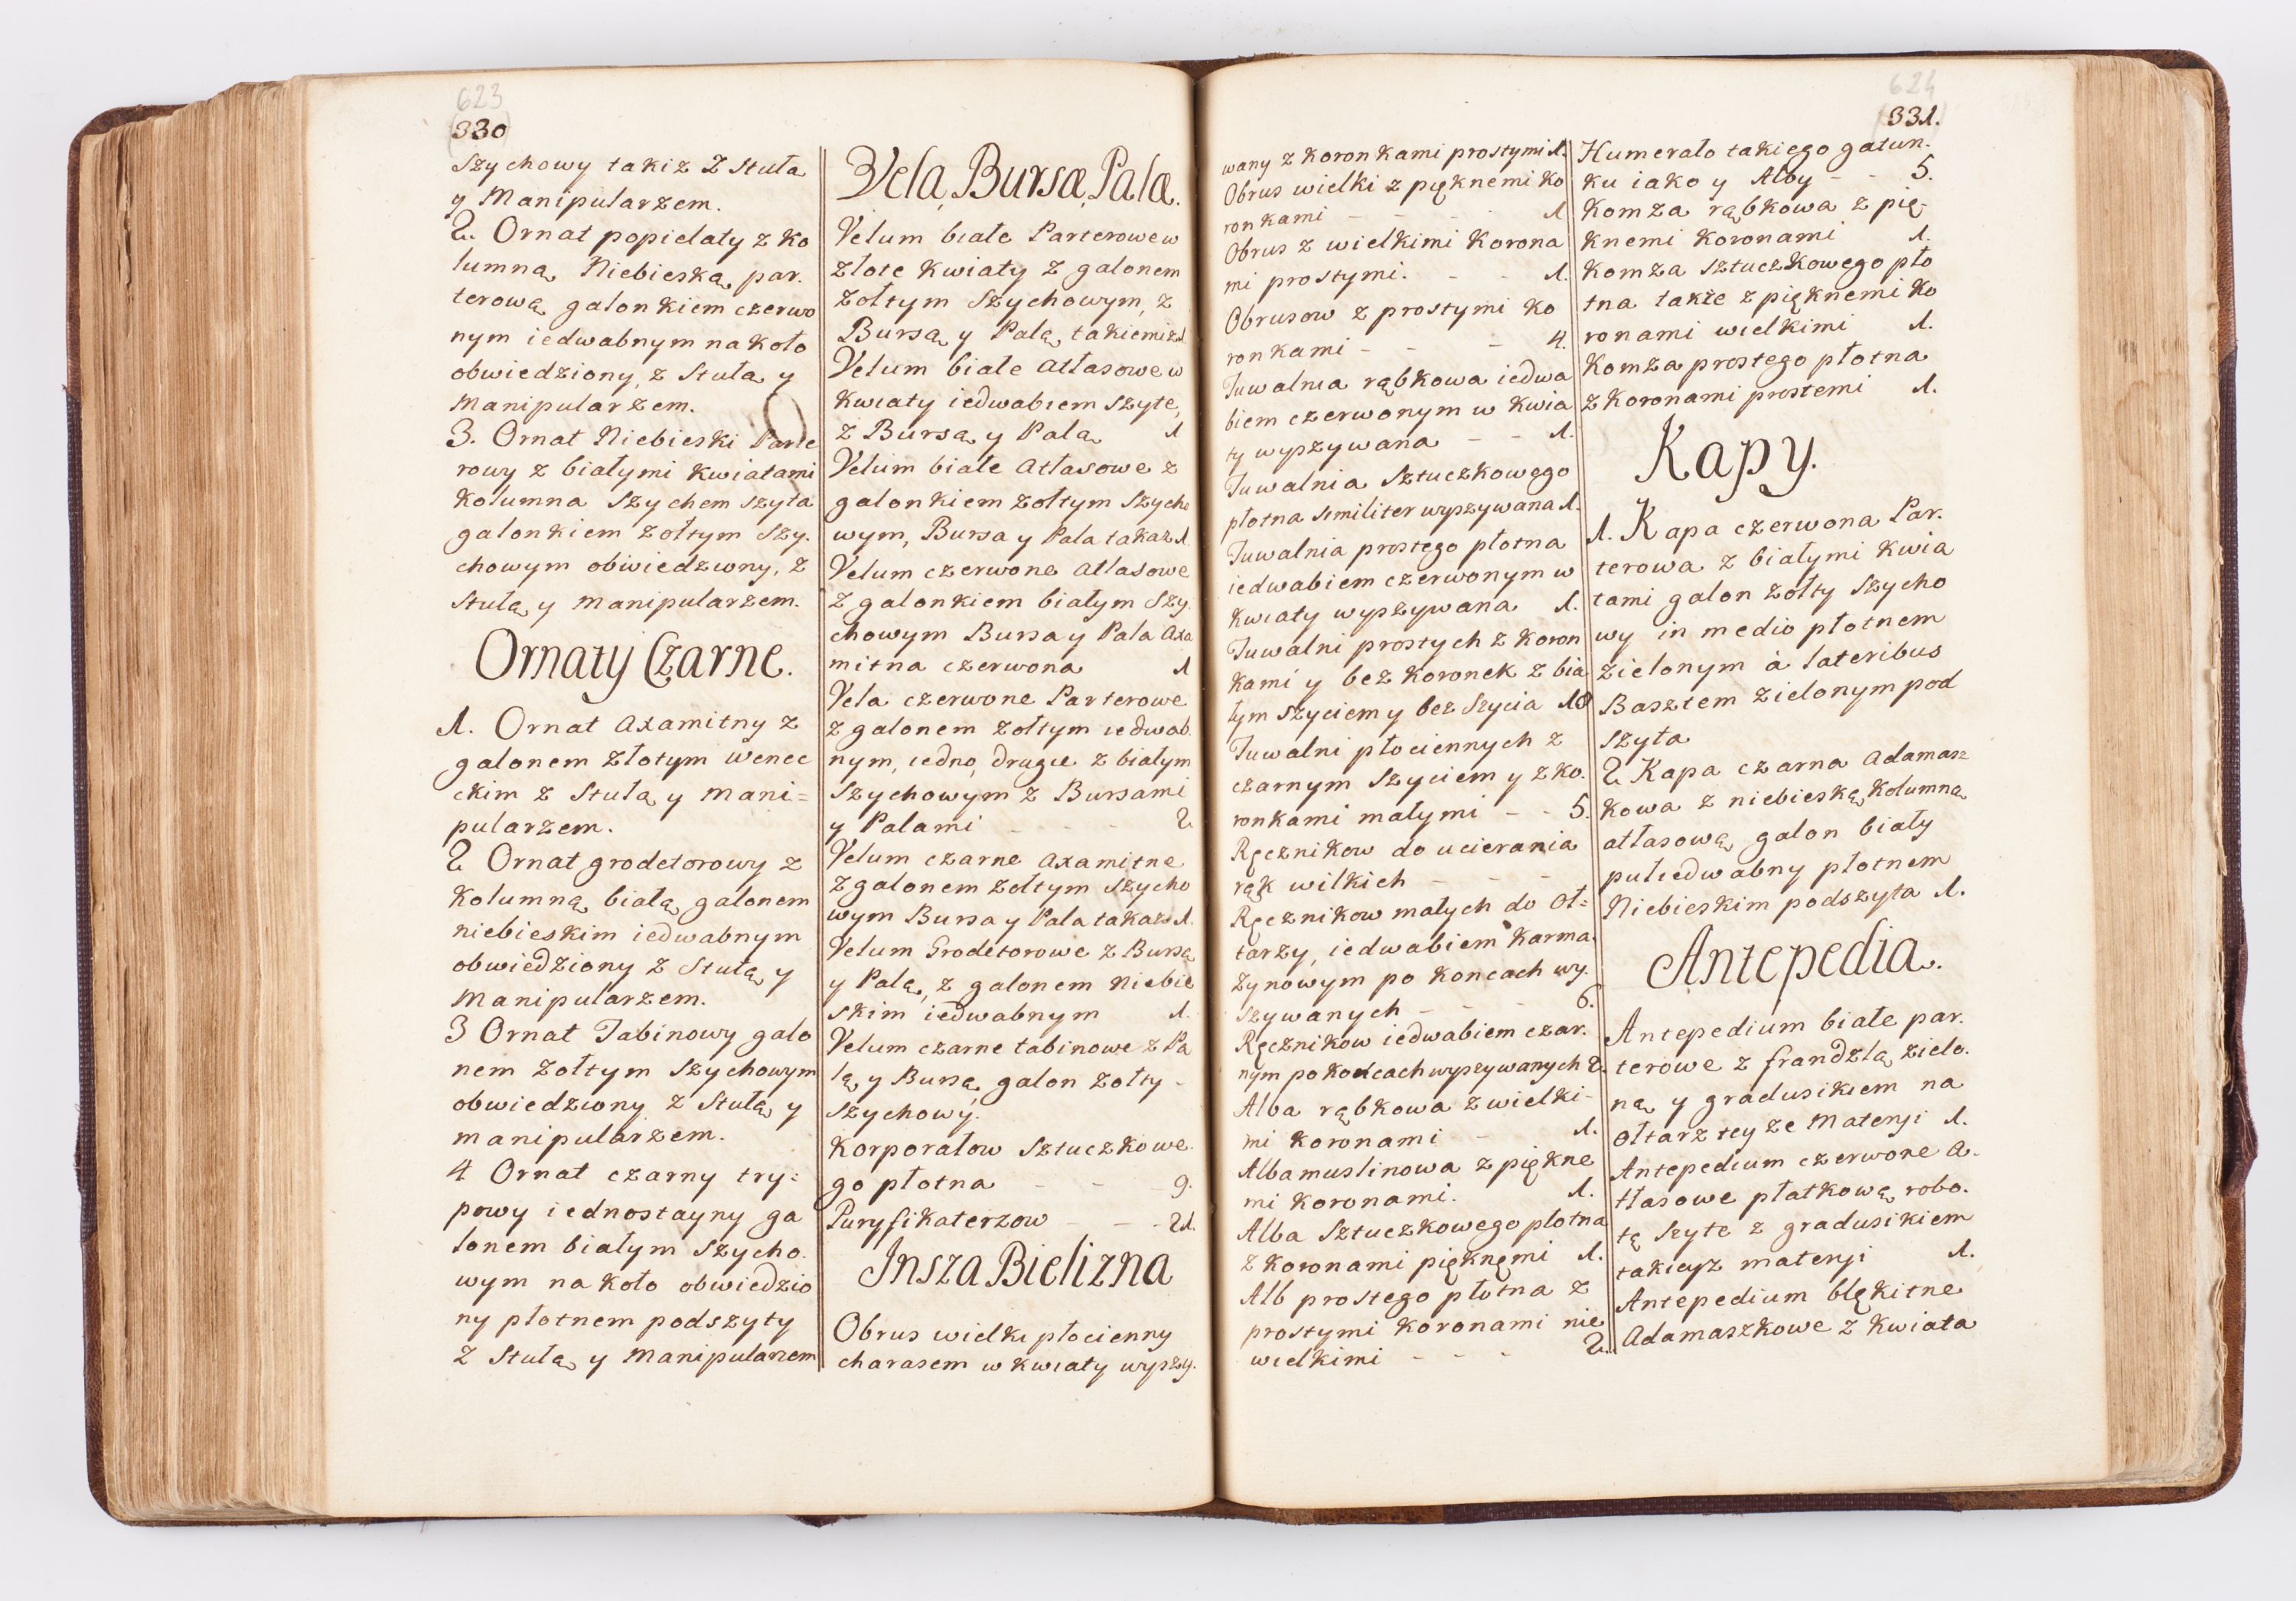 623
330
Szychowy takiz Z Stuła
y Manipularzem.
2. Ornat popielaty z Ko
lumną Niebieską, par.
terową galonkiem czerwo
nym iedwabnym na koło
obwiedziony, z Stułą y
Manipularzem.
3. Ornat Niebieski Parte
rowy z białymi Kwiatami
Kolumna Szychem Szyta
galonkiem żołtym Szy.
chowym obwiedziony, z
Stułą y Manipularzem.
Ornaty Czarne.
1. Ornat Axamitny z
galonem Złotym wenec
ckim z Stułą y Mani=
pularzem.
2 Ornat grodetorowy z
Kolumną białą galonem
niebieskim iedwabnym
obwiedziony z Stułą y
Manipularzem.
3 Ornat Tabinowy galo
nem żołtym Szychowym
obwiedziony z Stułą y
manipularzem.
4 Ornat czarny try=
powy iednostayny ga
lonem białym Szycho.
wym na koło obwiedzio
ny płotnem podszyty
z Stułą y Manipularzem
Vela, Bursæ, Palæ.
Velum białe Parterowe w
złote Kwiaty z galonem
żołtym Szychowym, z
Bursą y Palą takiemiż 1
Velum białe Atłasowe w
Kwiaty iedwabiem Szyte,
z Bursą y Palą 1
Velum białe Atłasowe z
galonkiem żołtym Szycho
wym, Bursa y Pala takaż 1.
Velum czerwone Atłasowe
z galonkiem białym Szy.
chowym Bursa y Pala Axa
mitna czerwona 1
Vela czerwone Parterowe
z galonem żołtym iedwab.
nym, iedno, drugie z białym
Szychowym z Bursami
y Palami - - - 2
Velum czarne Axamitne
z galonem żołtym Szycho
wym Bursa y Pala takaż 1.
Velum Grodetorowe z Bursą
y Palą, z galonem Niebie
skim iedwabnym 1.
Velum czarne tabinowe z Pa
lą y Bursą galon żołty -
Szychowy.
Korporałow Sztuczkowe.
go płotna - - - 9.
Puryfikaterzow - - - 21.
Insza Bielizna
Obrus wielki płocienny
charasem w kwiaty wyszy.
624
331.
wany z Koronkami prostymi 1.
Obrus wielki z pięknemi Ko
ronkami - - - 1
Obrus z wielkimi Korona
mi prostymi. - - 1.
Obrusow z prostymi Ko
ronkami - - - 4.
Tuwalnia rąbkowa iedwa
biem czerwonym w Kwia
ty wyszywana - - 1.
Tuwalnia Sztuczkowego
płotna similiter wyszywana 1.
Tuwalnia prostego płotna
iedwabiem czerwonym w
Kwiaty wyszywana 1.
Tuwalni prostych z Koron
Kami y bez Koronek z bia
łym szyciem y bez Szycia 18
Tuwalni płociennych z
czarnym Szyciem y z Ko.
ronkami małymi - - 5.
Ręcznikow do ucierania
rąk wilkich - - -
Ręcznikow małych do Oł=
tarzy, iedwabiem Karma.
zynowym po Koncach wy.
szywanych - - - 6.
Ręcznikow iedwabiem czar.
nym po Koncach wyszywanych 2.
Alba rąbkowa z wielki-
mi Koronami - 1.
Alba muslinowa z piękne
mi Koronami. 1.
Alba Sztuczkowego płotna
z Koronami pięknęmi 1.
Alb prostego płotna z
prostymi Koronami nie
wielkimi - - - 2.
Humerało takiego gatun.
ku iako y Alby - - 5.
Komża rąbkowa z pię.
knemi Koronami 1.
Komża Sztuczkowego pło
tna także z pięknemi Ko
ronami wielkimi 1.
Komża prostego płotna
z Koronami prostemi 1.
Kapy.
1. Kapa czerwona Par.
terowa z białymi Kwia
tami galon żołty Szycho
wy in medio płotnem
zielonym à lateribus
Basztem zielonym pod
szyta
2 Kapa czarna Adamasz
kowa z niebieską Kolumną
atłasową galon biały
pułiedwabny płotnem
Niebieskim podszyta 1.
Antepedia.
Antepedium białe par.
terowe z frandzlą zielo.
ną y gradusikiem na
Ołtarz tey że Materyi 1.
Antepedium czerwone A.
tłasowe płatkową robo.
tą Szyte z gradusikiem
takieyż materyi 1.
Antepedium błękitne
Adamaszkowe z Kwiata